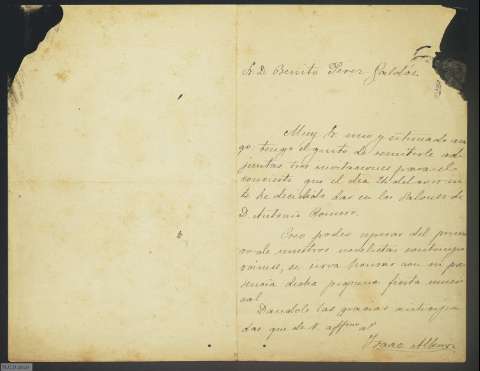 S. D. Benito Perez Galdós
Muy Sr. mio y estimado ami
go: tengo el gusto de remitirle ad
juntas, tres invitaciones para el
concierto que el dia 24 del
he decidido dar en los Salones de
D. Antonio Romero.
Creo poder esperar del prime
ro de nuestros novelistas contempo
raneos, se sirva honrar con su pre
sencia dicha pequeña fiesta musi
cal.
Dandole las gracias anticipa
das queda de V. affmo
Isaac Albeniz